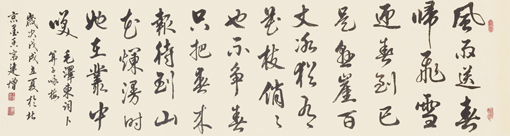 風雨送春
歸飛雪
迎春到已
是懸崖百
丈冰猶有
花枝俏俏
也不爭春
只把春來
報待到山
花爛漫時
她在叢中
笑
毛澤東詞卜
算子詠梅
歲次戊戌立夏於北
京